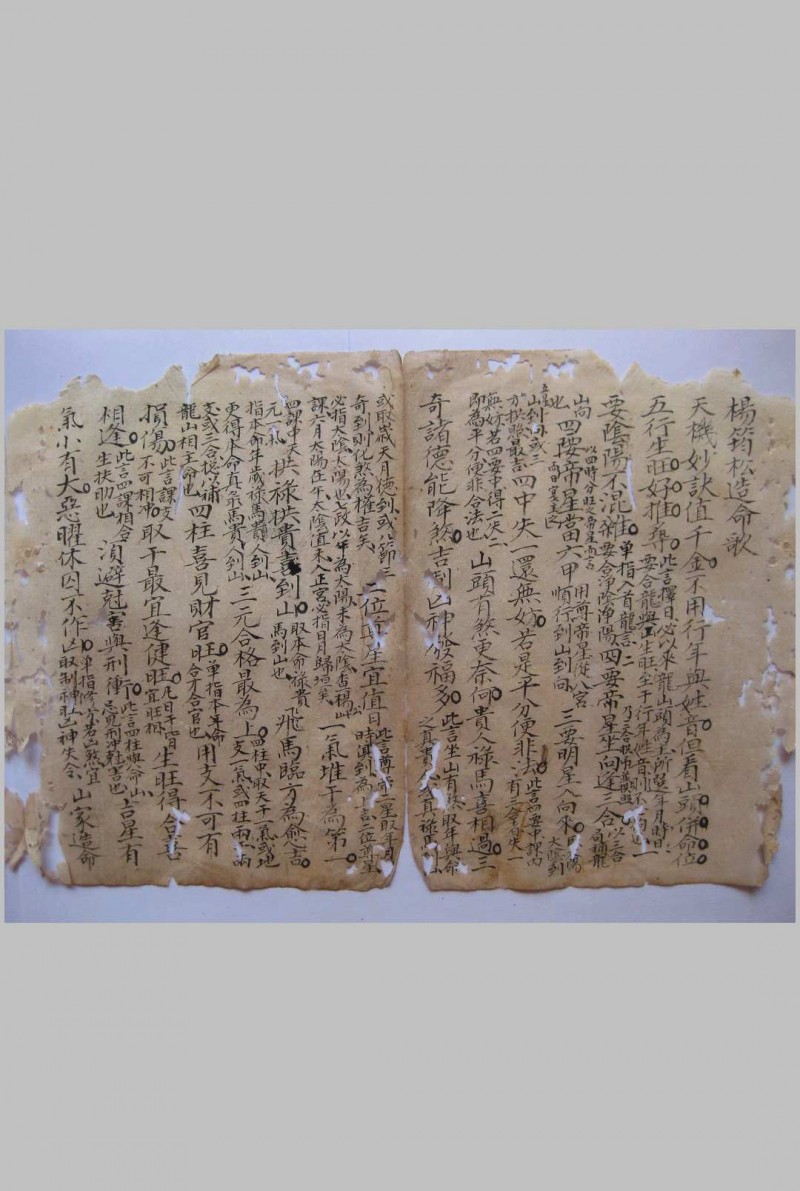 楊筠松造命歌
天機妙訣值千金不用行年與姓音但看山頭併命位
五行生旺好推尋此言擇日必以來龍山頭為主所
要合龍與生旺至于行年姓音則不一
要陰陽不混雜單指入首龍言二
乃要合淨陰淨陽四要帝星坐向逢三合以三合
山向
以四時分旺之
四要帝星當六甲用尊帝星從八宮
順行到山到向三要明星入向來
太陰到
山到向或三
方拱照最吉四中失一還無妨若是平分便非法此言四要中課內
有三全自失一
無妨若四要中得二失二
即為平分便非合法也山頭有煞更奈何貴人祿馬喜相過三
奇諸德能降煞吉到凶神發福多此言坐山有煞取年與命
之真貴人或真祿馬到山
或取歲天月德到或八節三
奇到則化煞為權吉矣二位尊星宜值日此言尊帝二星取年月
時俱到為上吉二位尊星
必指太陰太陽也七政以午為太陽未為太陰
課六月太陽在午太陰道未入正宮必指日月歸垣矣一氣堆干為第一
四課中天
元一氣拱祿拱貴喜到山取本命祿貴
馬到山也飛馬臨方為愈吉
指本命年歲祿馬貴人到山
更得本命真祿馬貴人到山三元合格最為上四柱中取天干一氣或地
支一氣或四柱兩干兩
支或三合總以補
龍山相主命也四柱喜見財官旺單指本年命
旺合才合官也用支不可有
損傷此言課支
不可相冲取干最宜逢健旺凡日干四
宜旺相生旺得合喜
相逢此言四課相合
生扶助也須避冠害與刑衝此言四柱與命山
忌見刑冲尅害也吉星有
氣小有大惡曜休囚不作凶單指修方若山煞宜
取制神旺凶神失令山家造命